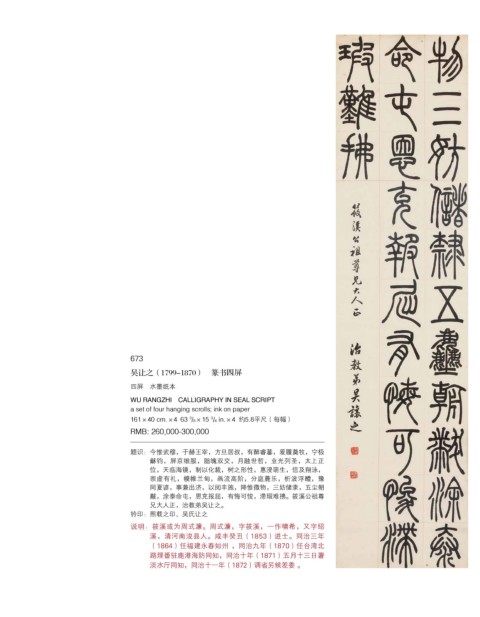 物三妨儲隸五塵朝黻涂泰
命屯恩充報屈有悔可悛滯
瑕難拂
筱溪公祖尊兄大人正 治教弟吴讓之
673
吴让之（1799-1870） 篆书四屏
四屏 水墨纸本
WU RANGZHI CALLIGRAPHY IN SEAL SCRIPT
a set of four hanging scrolls; ink on paper
161 × 40 cm. × 4 63 3/8 × 15 3/4 in. × 4 约5.8平尺（每幅）
RMB: 260,000-300,000
题识：今惟武穆，于赫王宰，方旦居叔，有酬睿蕃，爰履奠牧，宁极
赫钧，屏京维服，朏魄双交，月融世哲，业光列圣，太上正
位，天临海镜，制以化裁，树之形性，惠浸萌生，信及翔泳，
崇虚有礼，幰帷兰甸，画流高阶，分庭荐乐，析波浮醴，豫
同夏谚，事兼出济，以闰丰施，降惟微物，三妨储隶，五尘朝
黻，涂泰命屯，恩充报屈，有悔可悛，滞瑕难拂。筱溪公祖尊
兄大人正，治教弟吴让之。
钤印：熙载之印、吴氏让之
说明：筱溪或为周式濂。周式濂，字筱溪，一作啸希，又字绍
溪，清河南浚县人，咸丰癸丑（1853）进士。同治三年
（1864）任福建永春知州，同治九年（1870）任台湾北
路理番驻鹿港海防同知，同治十年（1871）五月十三日署
淡水厅同知，同治十一年（1872）调省另候差委。